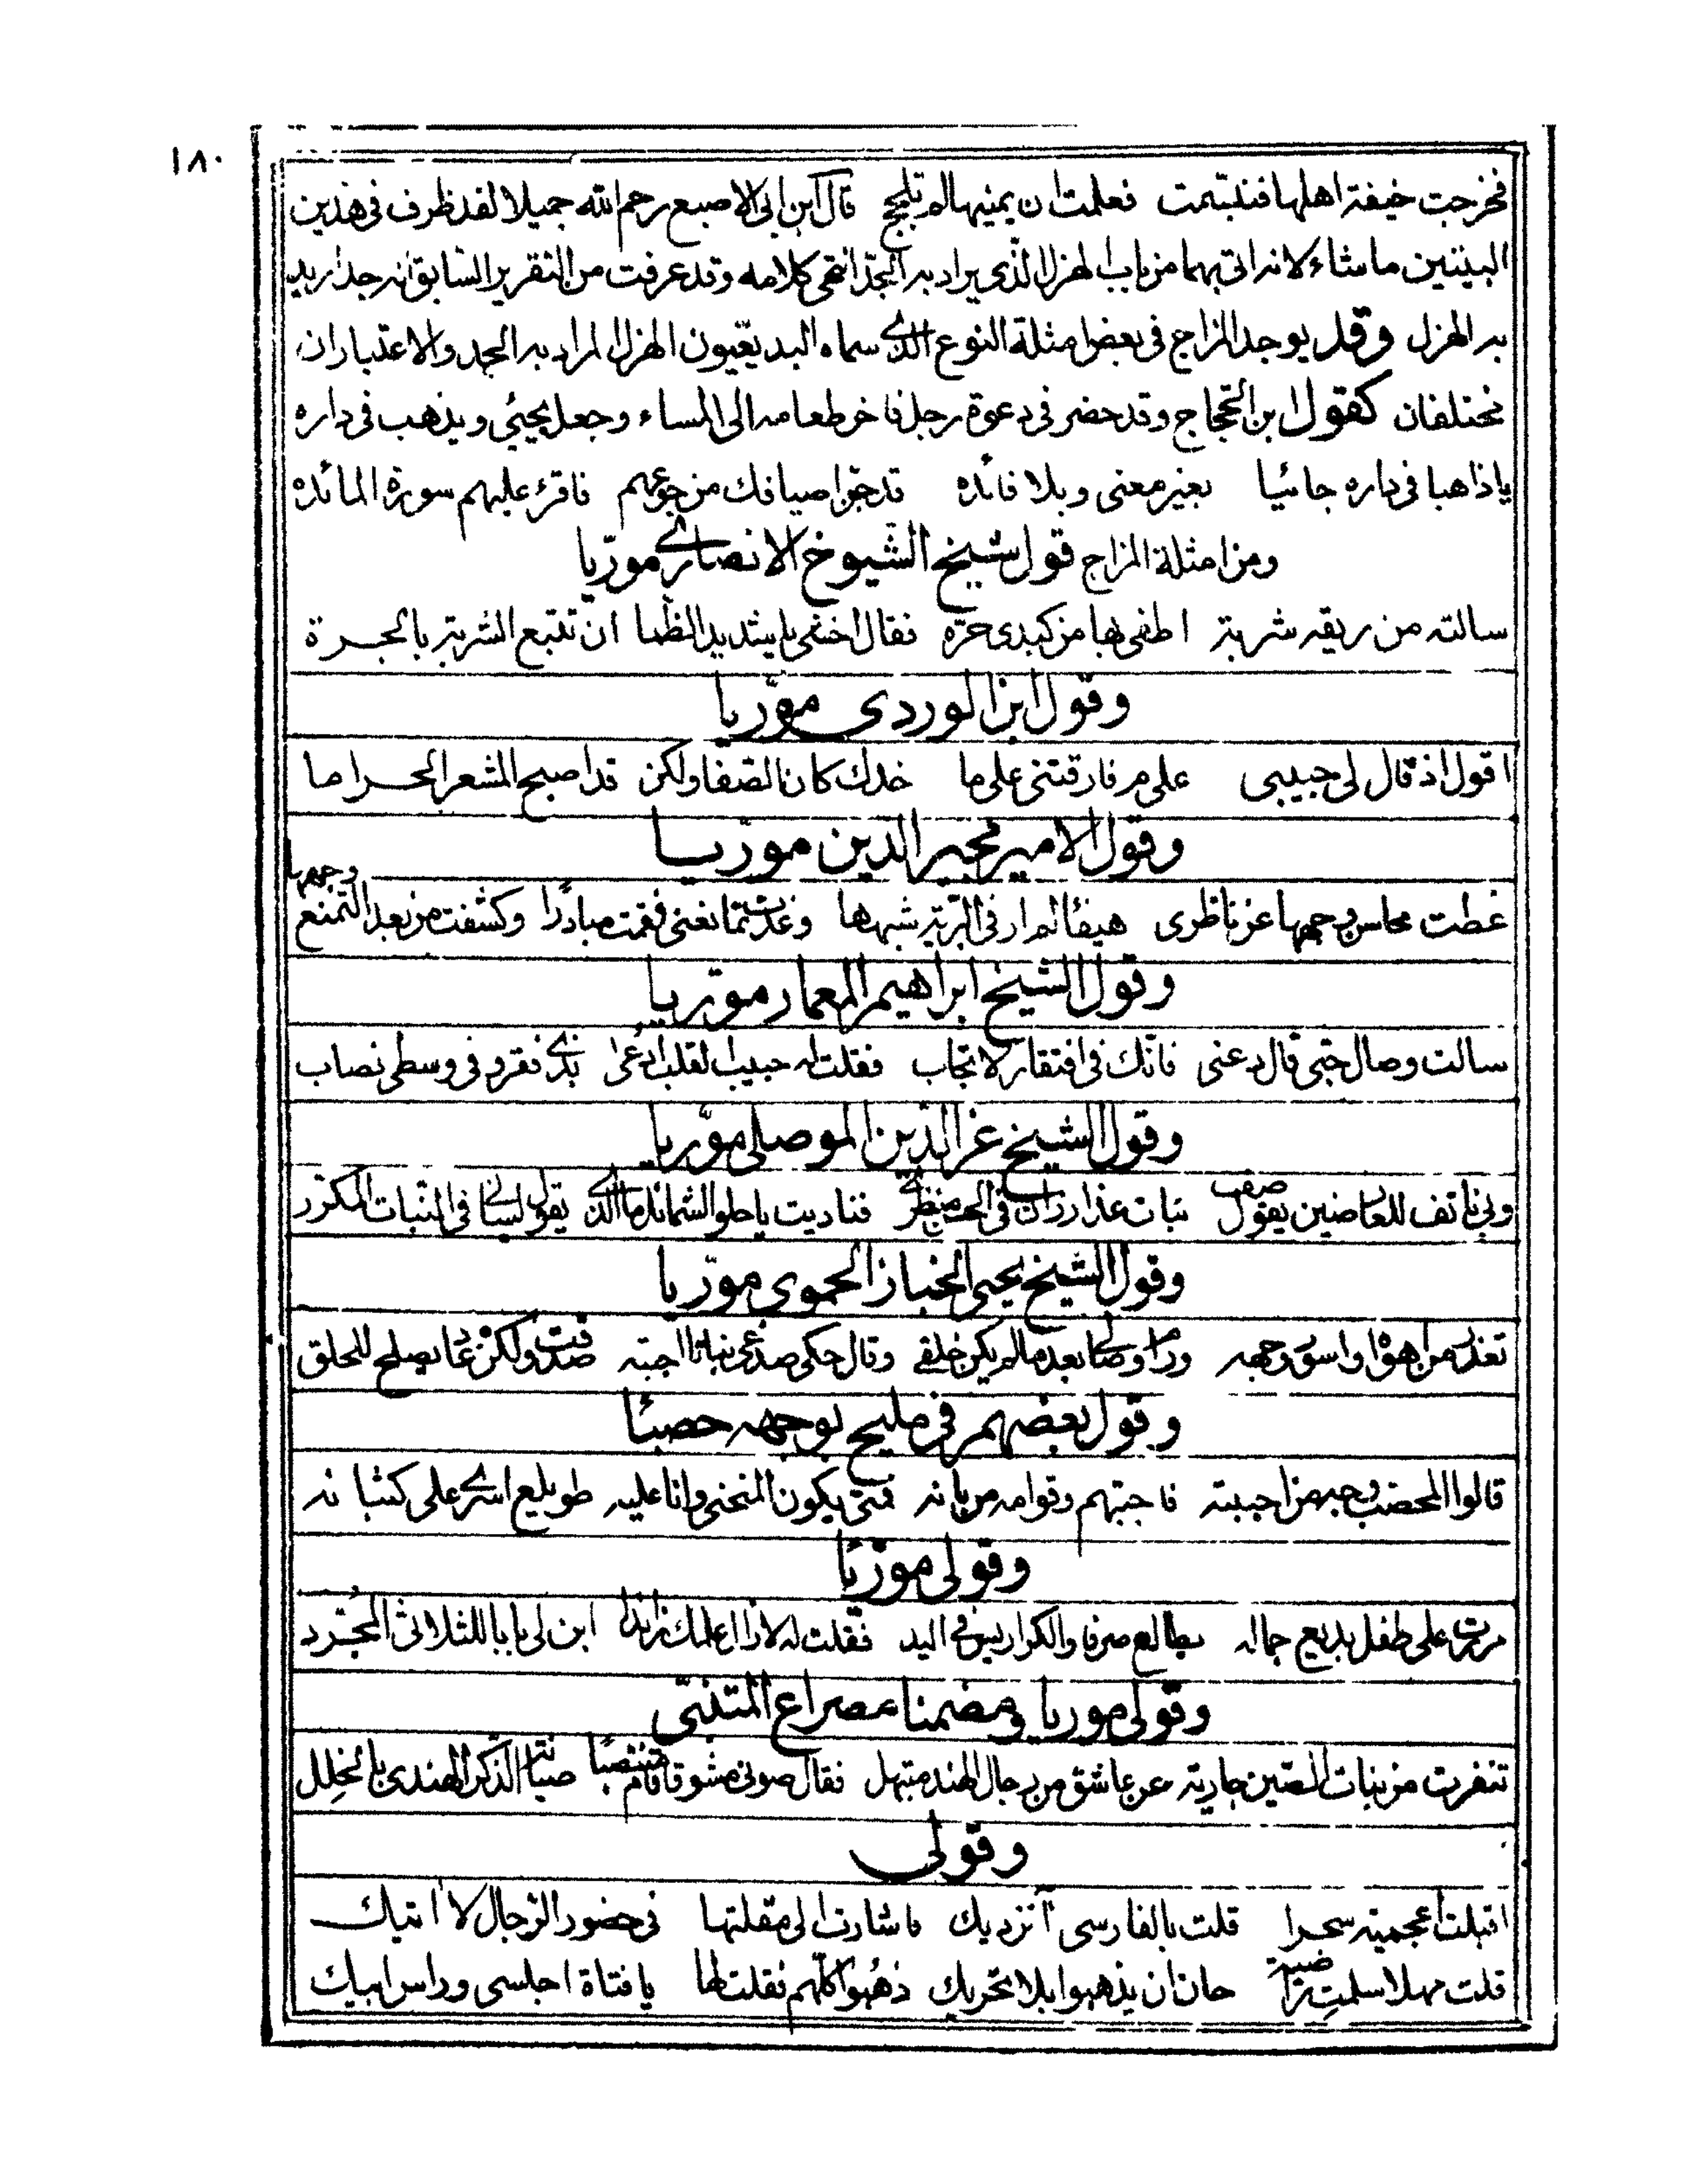 ١٨٠
فخرجت خيفة اهلها فتبسمت فعلمت ان يمينها لم تلجج قال ابن ابى الاصبع رحم الله جميلا لقد ظرف فى هذين
البيتين ما شاء لانه اتى بهما من باب الهزل الذى يراد به الجد انتهى كلامه وقد عرفت من التقرير السابق انه جد اريد
به الهزل وقد يوجد المزاح فى بعض امثلة النوع الذى سماه البديعيون الهزل المراد به الجد والاعتباران
مختلفان كقول ابن الحجاج وقد حضر فى دعوة رجل فاخر طعامه الى المساء وجعل يجيئ ويذهب فى داره
يا ذاهبا فى داره جائيا بغير معنى وبلا فائده قد جن اضيافك من جوعهم فاقرء عليهم سورة المائده
ومن امثلة المزاح قول شيخ الشيوخ الانصارى موريا
سالته من ريقه شربة اطفى بها من كبدى حره فقال اخشى يا شديد الظما ان تتبع الشربة بالجرة
وقول ابن الوردى موريا
اقول اذ قال لى حبيبى على م فارقتنى على ما خدك كان الصفا ولكن قد اصبح المشعر الحراما
وقول الامير مجير الدين موريا
غطت محاسن وجهها عن ناظرى هيفا لم ار فى البرية شبهها وغدت تمانعنى فقمت مبادرا وكشفت من بعد التمنع
وجهها
وقول الشيخ ابراهيم المعمار موريا
سالت وصال حبى قال دعنى فانك فى افتقار لا تجاب فقلت له حبيب القلب ادعى بذى فقر وفى وسطى نصاب
وقول الشيخ عز الدين الموصلى موريا
ولى ناتف للعارضين يقول صف نبات عذار زان فى الحسن منظرى فناديت يا حلو الشمائل ما الذى يقول لسانى فى النبات المكرر
وقول الشيخ يحيى الخباز الحموى موريا
تعذر من اهوا واسود وجهه ورام وصالى بعد ما لم يكن خلقى وقال حكى صدغى نباتا اجبته صدقت ولكن عما يصلح للحلق
وقول بعضهم فى مليح بوجهه حصبئا
قالوا المحصب وجه من احببته فاجبتهم وقوامه من بانه فمتى يكون المنحنى وانا عليه طويلع اسرى على كثبانه
وقولى موريا
مررت على طفل بديع جماله يطالع صرفا والكراريس فى اليد فقلت له لا زال علمك زائدا ابن لى بابا للثلاثى المجرد
وقولى موريا ومضمنا مصراع المتنبى
تنفرت من بنات الصين جارية عن عاشق من رجال الهند مبتهل فقال صونى مشوقا قام منتصبا صيانة الذكر الهندى بالخلل
وقولى
اقبلت اعجمية سحرا قلت بالفارسى آ نزديك فاشارت الى مقلتها فى حضور الرجال لا اتيك
قلت مهلا سلمت من ضيم حان ان يذهبوا بلا تحريك ذهبوا كلهم فقلت لها يا فتاة اجلسى وراس ابيك